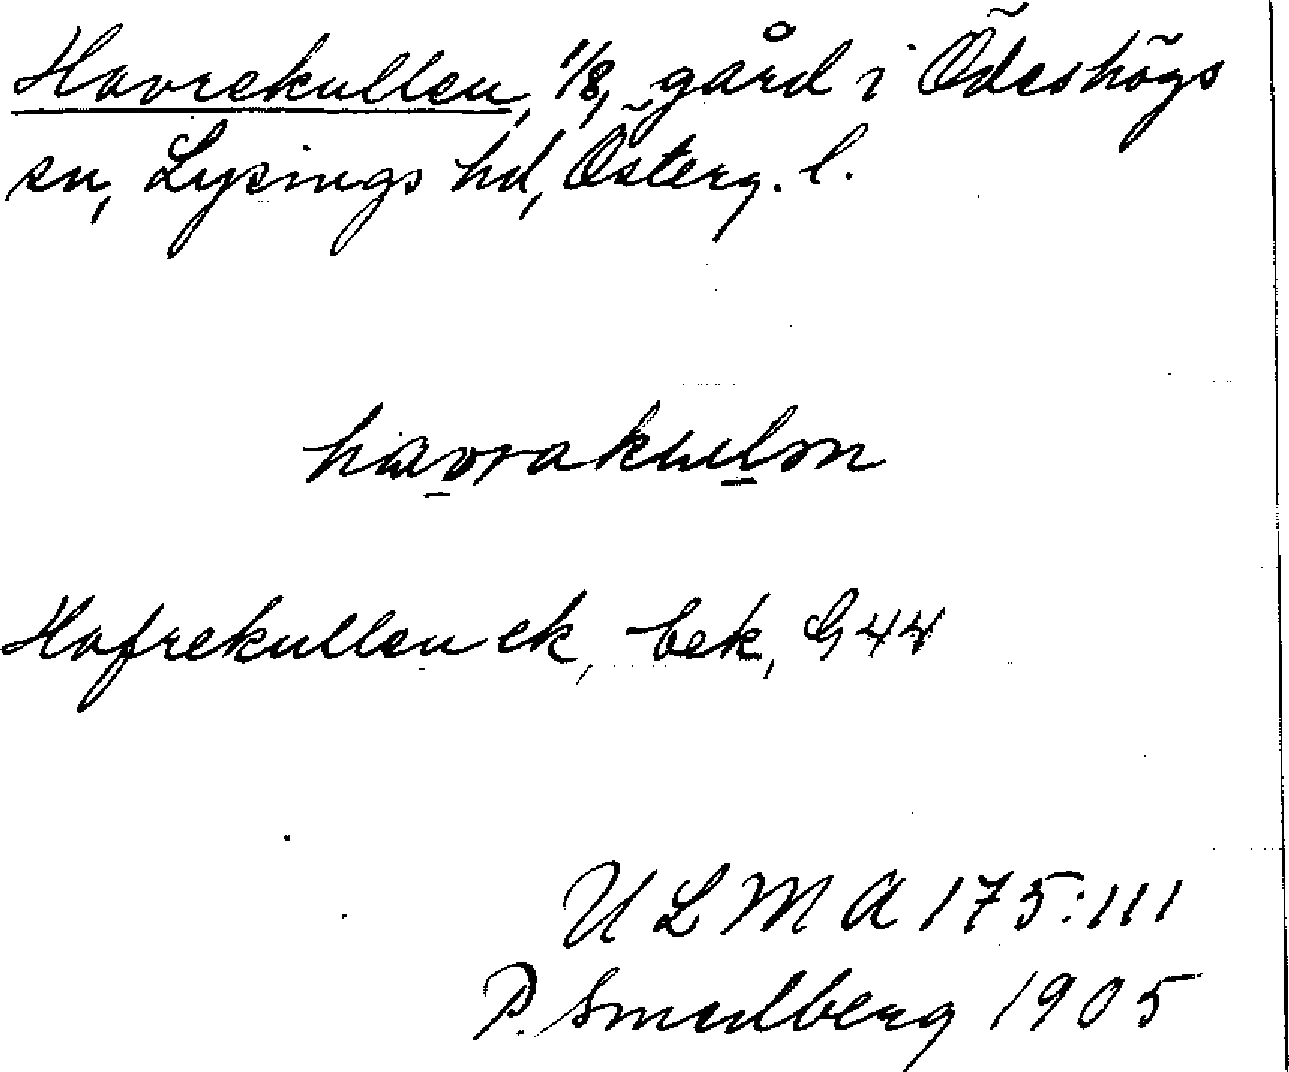 Havrekullen, 1/8, gård i Ödeshögs
sn, Lysings hd, Österg. l.
havrakulən
Hafrekullen ek, bek, G44
ULMA 175:111
P. Smedberg 1905